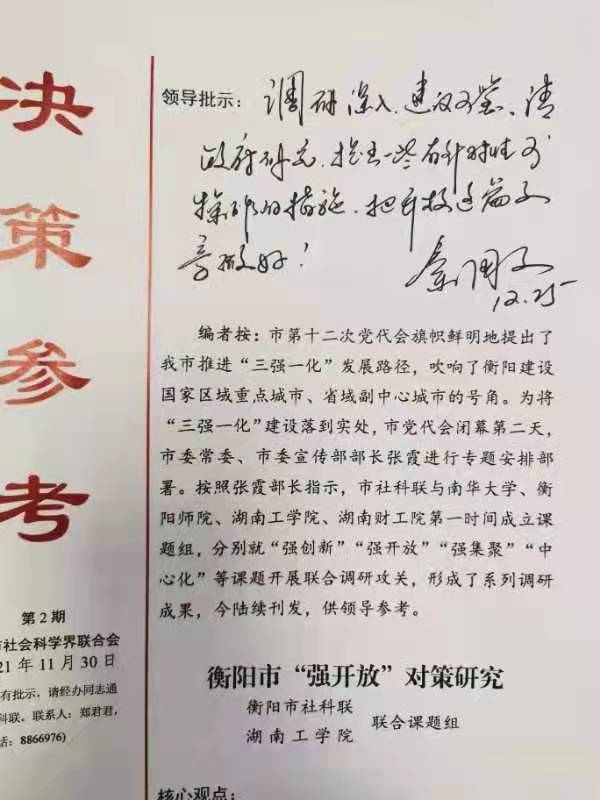 决
策
参
考
第 2 期
市社会科学界联合会
21 年 11 月 30 日
有批示，请经办同志通
科联。联系人：郑君君，
话：8866976)
领导批示：调研深入、建议可鉴、请
政府研究、提出一些有针对性可
操作的措施、把开放这篇文
章做好！
秦国文
12.25
编者按：市第十二次党代会旗帜鲜明地提出了
我市推进“三强一化”发展路径，吹响了衡阳建设
国家区域重点城市、省域副中心城市的号角。为将
“三强一化”建设落到实处，市党代会闭幕第二天，
市委常委、市委宣传部部长张霞进行专题安排部
署。按照张霞部长指示，市社科联与南华大学、衡
阳师院、湖南工学院、湖南财工院第一时间成立课
题组，分别就“强创新”“强开放”“强集聚”“中
心化”等课题开展联合调研攻关，形成了系列调研
成果，今陆续刊发，供领导参考。
衡阳市“强开放”对策研究
衡阳市社科联
湖南工学院
联合课题组
核心观点：